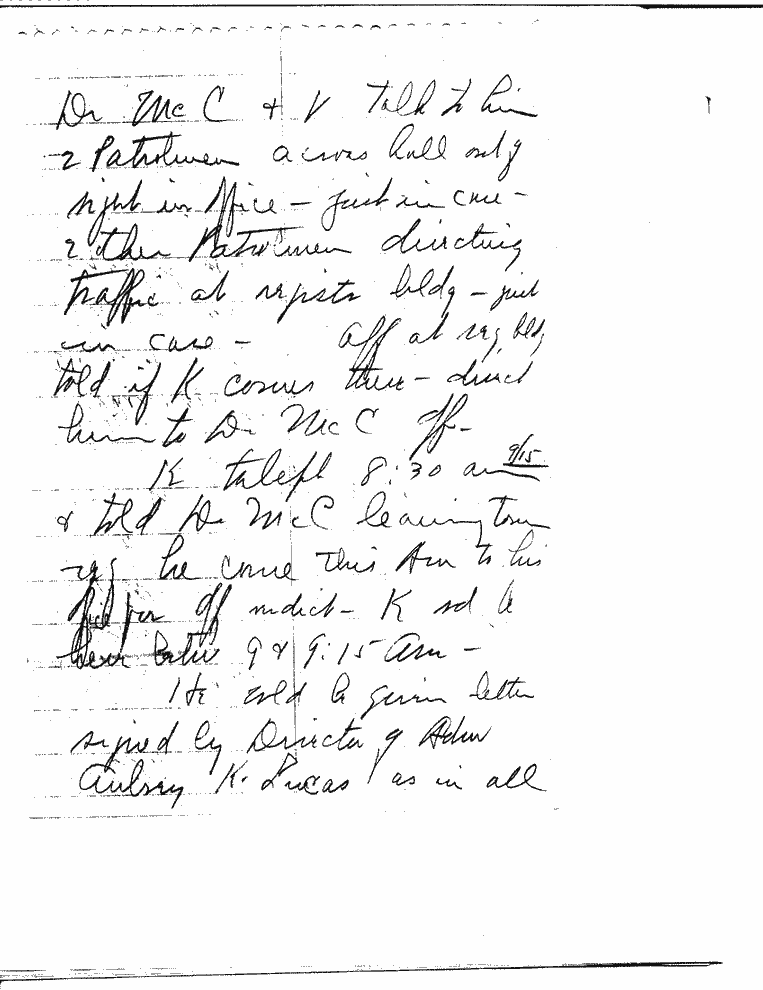 Dr McC & V talk to him
2 Patrolmen across hall out of
sight in office – just in case –
2 other Patrolmen directing
traffic at registr bldg – just
in case – off at reg bldg
told if K comes there – direct
him to Dr McC off –
K teleph 8:30 am 9/15
& told Dr McC leaving town
req he come this Am to his
off K sd b
here betw 9 & 9:15 Am –
He wld b given letter
signed by Director of Adm
Aubrey K. Lucas as in all